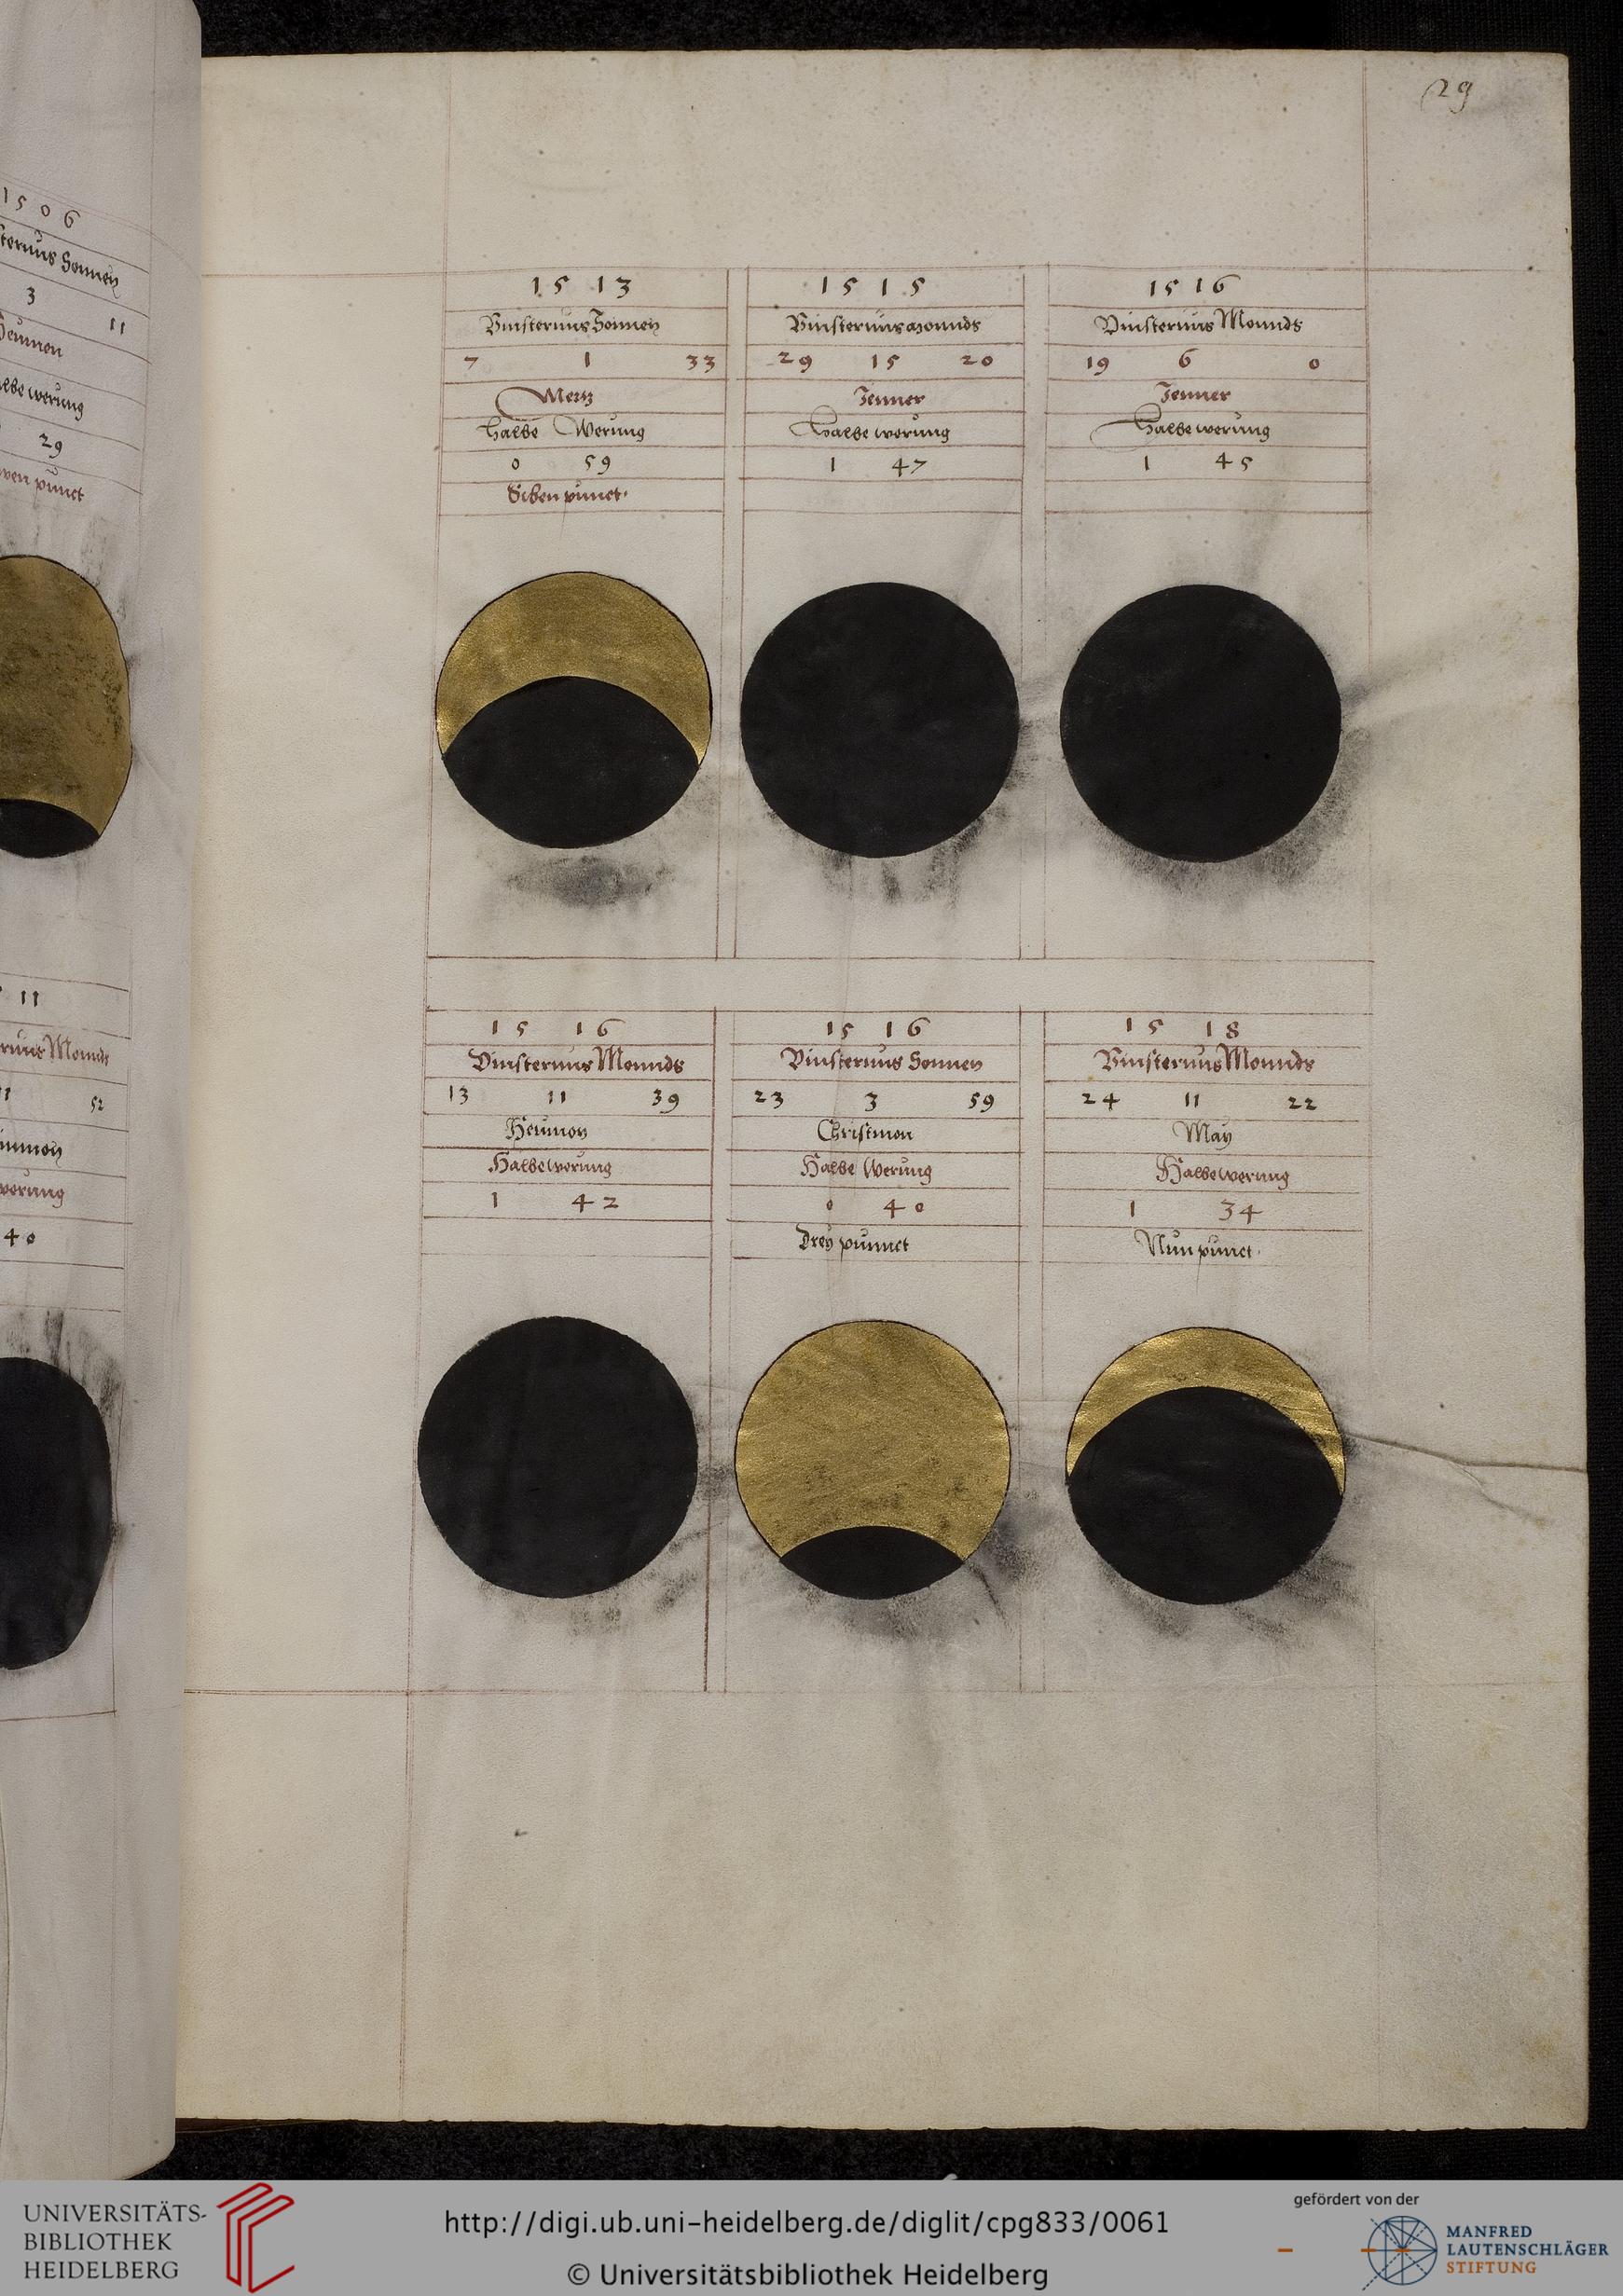 29
1506
Sonnen
3 11
29
punct
15 13
Vinsternus Sonnen
7 1 33
Mertz
Halbe Werung
0 59
Siben punct
15 15
Vinsternus Monnds
29 15 20
Jenner
Halbe werung
1 47
15 16
Vinsternus Monnds
19 6 0
Jenner
Halbe werung
1 45
11
52
werung
40
15 16
Vinsternus Monnds
13 11 39
Heumon
Halbe werung
1 42
15 16
Vinsternus Sonnen
23 3 59
Christmon
Halbe Werung
0 40
Drey punct
15 18
Vinsternus Monnds
24 11 22
May
Halbe werung
1 34
Nun punct
UNIVERSITÄTS-
BIBLIOTHEK
HEIDELBERG
http://digi.ub.uni-heidelberg.de/diglit/cpg833/0061
© Universitätsbibliothek Heidelberg
gefördert von der
MANFRED
LAUTENSCHLÄGER
STIFTUNG